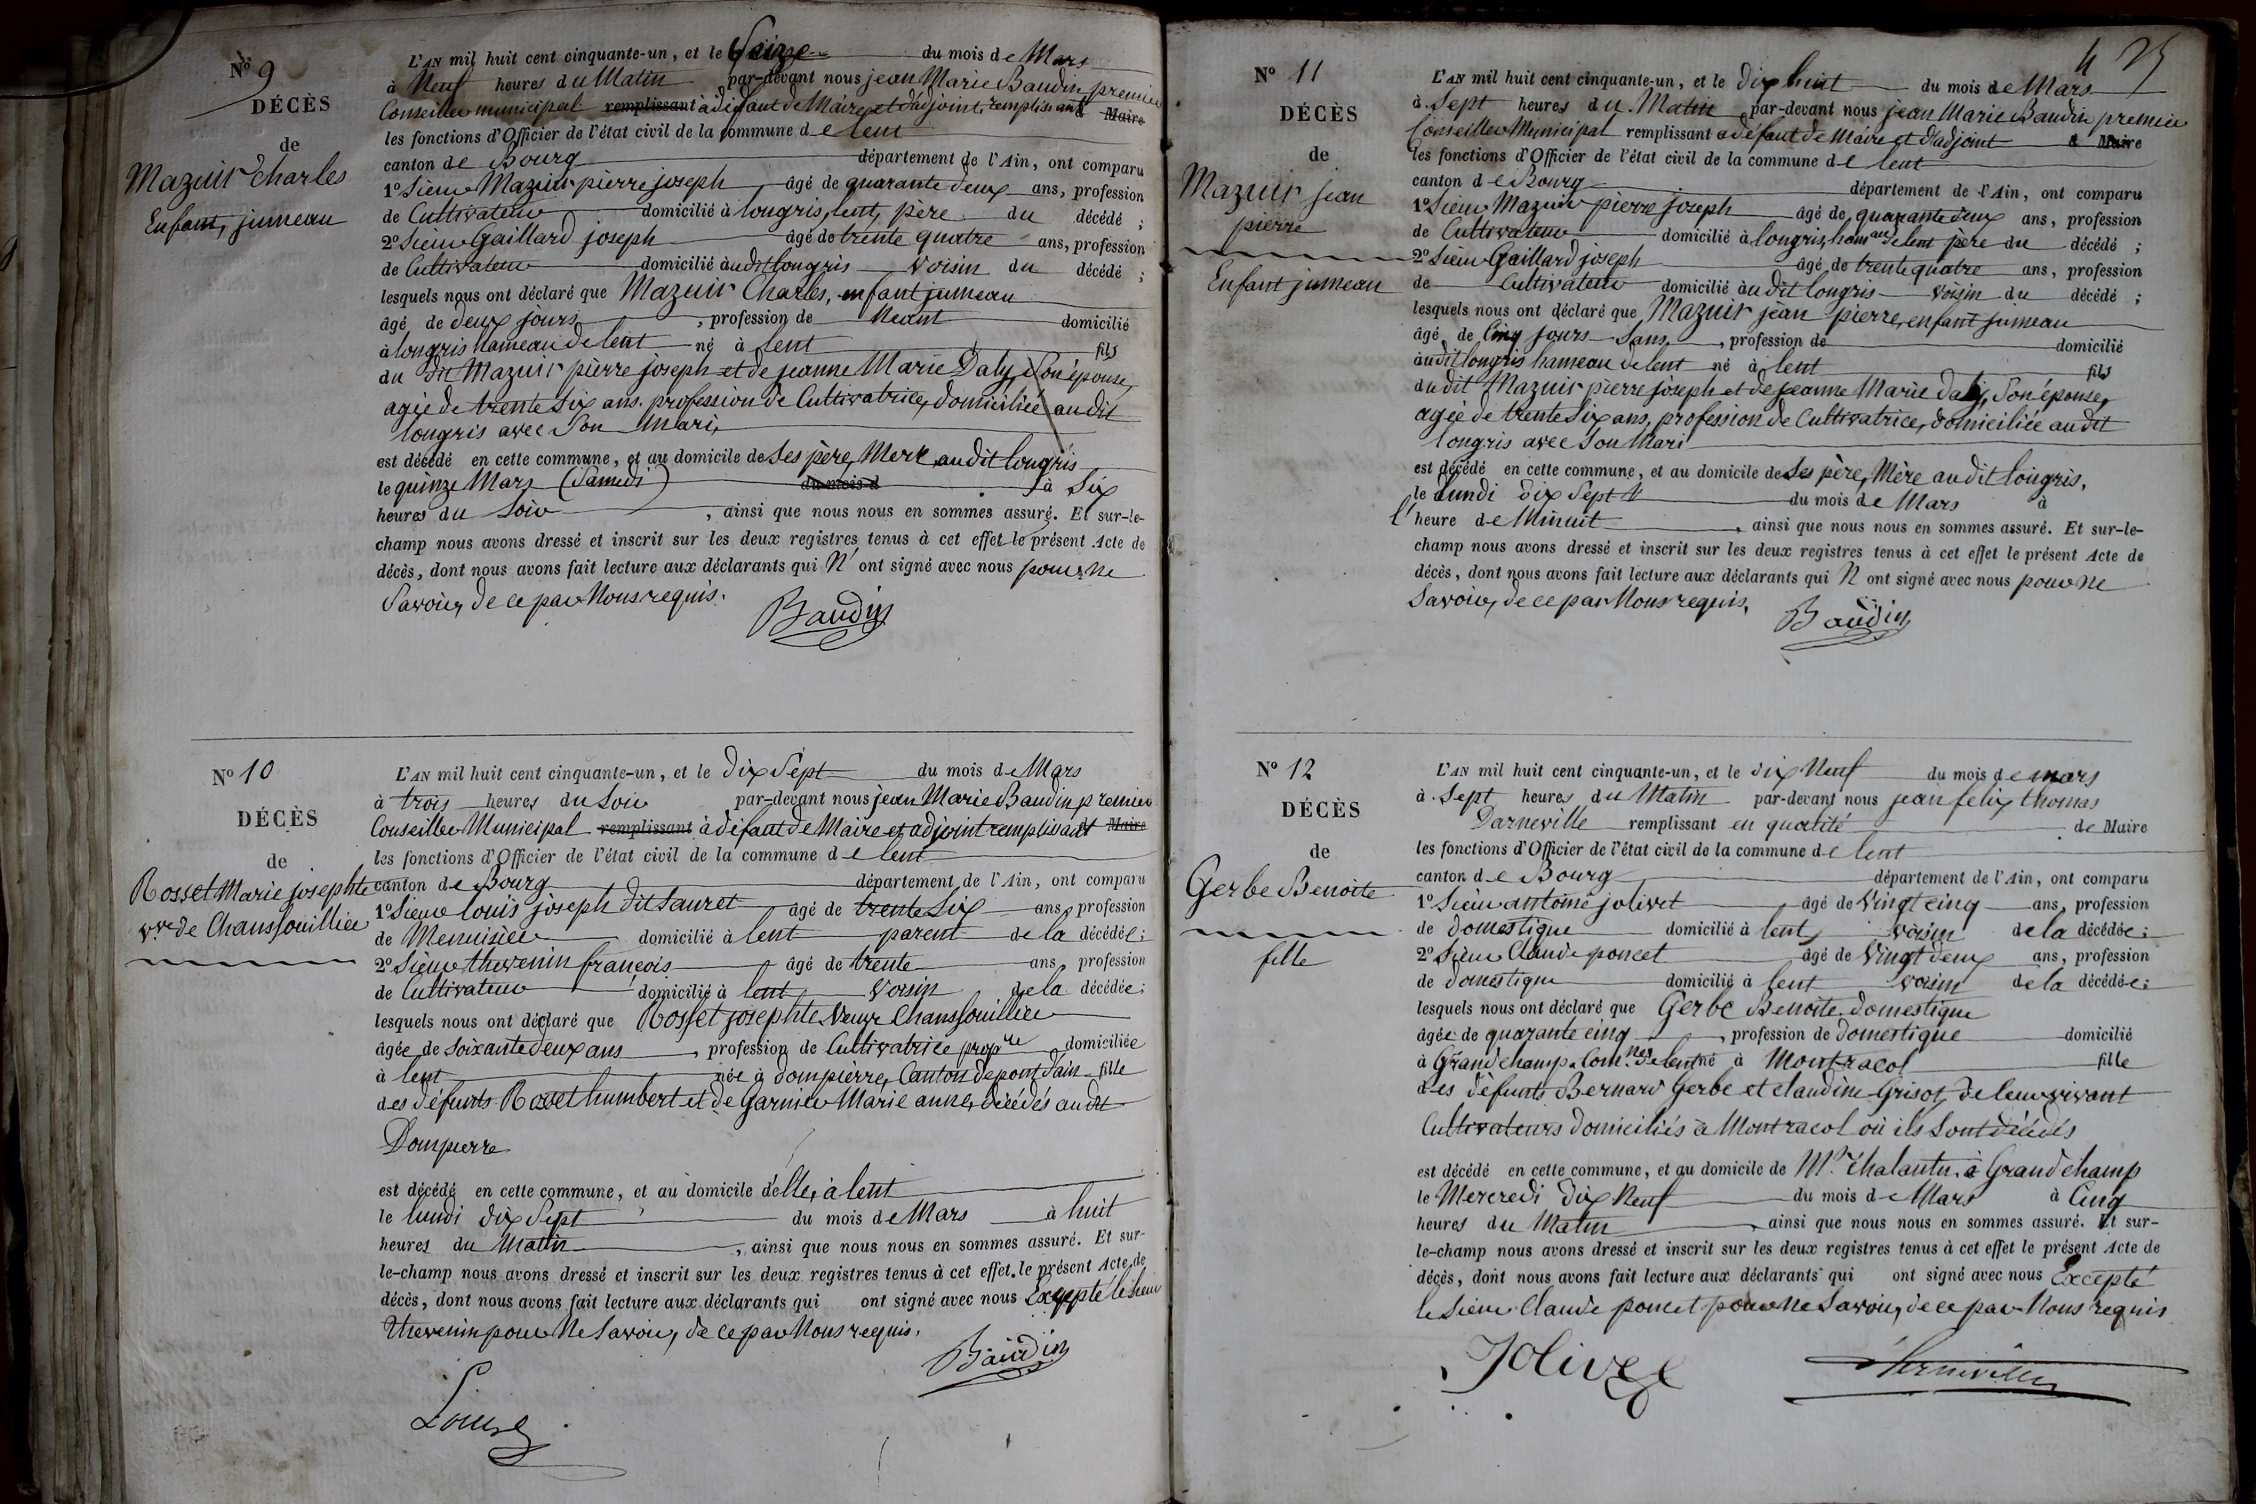 No 9
DÉCÈS
de
Mazuir Charles
Enfant, jumeau
L'AN mil huit cent cinquante-un, et le Seize du mois de Mars
à Neuf heures du Matin par-devant nous jean Marie Baudin premier
Conseiller municipal remplissant à défaut de Maire et d'adjoint, remplissant Maire
les fonctions d'Officier de l'état civil de la commune de lent
canton de Bourg département de l'Ain, ont comparu
1o Sieur Mazuir pierre joseph âgé de quarante deux ans, profession
de Cultivateur domicilié à longris, lent, père du décédé ;
2o Sieur Gaillard joseph âgé de trente quatre ans, profession
de Cultivateur domicilié audit longris voisin du décédé ;
lesquels nous ont déclaré que Mazuir Charles, enfant jumeau
âgé de deux jours, profession de Neant domicilié
à longris hameau de lent né à lent fils
du dit Mazuir pierre joseph et de jeanne Marie Daly, Son épouse,
agée de trente Six ans. profession de Cultivatrice, domiciliée au dit
longris avec Son Mari,
est décédé en cette commune, et au domicile de Ses père, Mere, au dit longris
le quinze Mars (Samedi) du mois d à Six
heures du Soir, ainsi que nous nous en sommes assuré. Et sur-le-
champ nous avons dressé et inscrit sur les deux registres tenus à cet effet le présent Acte de
décès, dont nous avons fait lecture aux déclarants qui N' ont signé avec nous pour ne
Savoir, de ce par Nous requis.
Baudin
No 10
DÉCÈS
de
Rosset Marie josephte
vve de Chanssouillier
L'AN mil huit cent cinquante-un, et le dix Sept du mois de Mars
à trois heures du Soir par-devant nous jean Marie Baudin premier
Conseiller Municipal remplissant à défaut de Maire et adjoint remplissant Maire
les fonctions d'Officier de l'état civil de la commune de lent
canton de Bourg département de l'Ain, ont comparu
1o Sieur louis joseph dit Sauret âgé de trente Six ans, profession
de Menuisier domicilié à lent parent de la décédée ;
2o Sieur thevenin françois âgé de trente ans, profession
de Cultivateur domicilié à lent voisin de la décédée ;
lesquels nous ont déclaré que Rosset josephte Veuve Chanssouillier
âgée de Soixante deux ans, profession de Cultivatrice propre domiciliée
à lent née à dompierre, Canton de pont d'ain fille
des défunts Rosset humbert et de Garnier Marie anne, décédés au dit
Dompierre
est décédé en cette commune, et au domicile d'elle, à lent
le lundi dix Sept du mois de Mars à huit
heures du Matin, ainsi que nous nous en sommes assuré. Et sur-
le-champ nous avons dressé et inscrit sur les deux registres tenus à cet effet, le présent Acte de
décès, dont nous avons fait lecture aux déclarants qui ont signé avec nous Excepté le Sieur
thevenin pour Ne Savoir, de ce par Nous requis.
Baudin
Louis
4 25
No 11
DÉCÈS
de
Mazuir jean
pierre
Enfant jumeau
L'AN mil huit cent cinquante-un, et le dix huit du mois de Mars
à Sept heures du Matin par-devant nous jean Marie Baudin premier
Conseiller Municipal remplissant à défaut de Maire et d'adjoint Maire
les fonctions d'Officier de l'état civil de la commune de lent
canton de Bourg département de l'Ain, ont comparu
1o Sieur Mazuir pierre joseph âgé de quarante deux ans, profession
de Cultivateur domicilié à longris, hameau de lent père du décédé ;
2o Sieur Gaillard joseph âgé de trente quatre ans, profession
de Cultivateur domicilié au dit longris voisin du décédé ;
lesquels nous ont déclaré que Mazuir jean pierre, enfant jumeau
âgé de Cinq jours Sans, profession de domicilié
au dit longris hameau de lent né à lent fils
du dit Mazuir pierre joseph et de jeanne Marie daly, Son épouse,
agée de trente Six ans, profession de Cultivatrice, domiciliée au dit
longris avec Son Mari
est décédé en cette commune, et au domicile de Ses père, Mère au dit longris,
le lundi dix Sept du mois de Mars à
l'heure de Minuit, ainsi que nous nous en sommes assuré. Et sur-le-
champ nous avons dressé et inscrit sur les deux registres tenus à cet effet le présent Acte de
décès, dont nous avons fait lecture aux déclarants qui N ont signé avec nous pour ne
Savoir, de ce par Nous requis,
Baudin
No 12
DÉCÈS
de
Gerbe Benoite
fille
L'AN mil huit cent cinquante-un, et le dix Neuf du mois de mars
à Sept heures du Matin par-devant nous jean felix thomas
Darneville remplissant en qualité de Maire
les fonctions d'Officier de l'état civil de la commune de lent
canton de Bourg département de l'Ain, ont comparu
1o Sieur antoine jolivet âgé de Vingt cinq ans, profession
de domestique domicilié à lent, voisin de la décédée ;
2o Sieur Claude poncet âgé de Vingt deux ans, profession
de domestique domicilié à lent voisin de la décédée ;
lesquels nous ont déclaré que Gerbe Benoite domestique
âgée de quarante cinq, profession de domestique domicilié
à Grand champ, Comne de lent né à Montracol fille
des défunts Bernard Gerbe et claudine Grisot, de leur vivant
Cultivateurs domiciliés à Montracol où ils Sont décédés
est décédé en cette commune, et au domicile de Mr. Chalantn, à Grand champ
le Mercredi dix Neuf du mois de Mars à Cinq
heures du Matin, ainsi que nous nous en sommes assuré. Et sur-
le-champ nous avons dressé et inscrit sur les deux registres tenus à cet effet le présent Acte de
décès, dont nous avons fait lecture aux déclarants qui ont signé avec nous Excepté
le Sieur Claude poncet pour ne Savoir, de ce par Nous requis
Jolivet